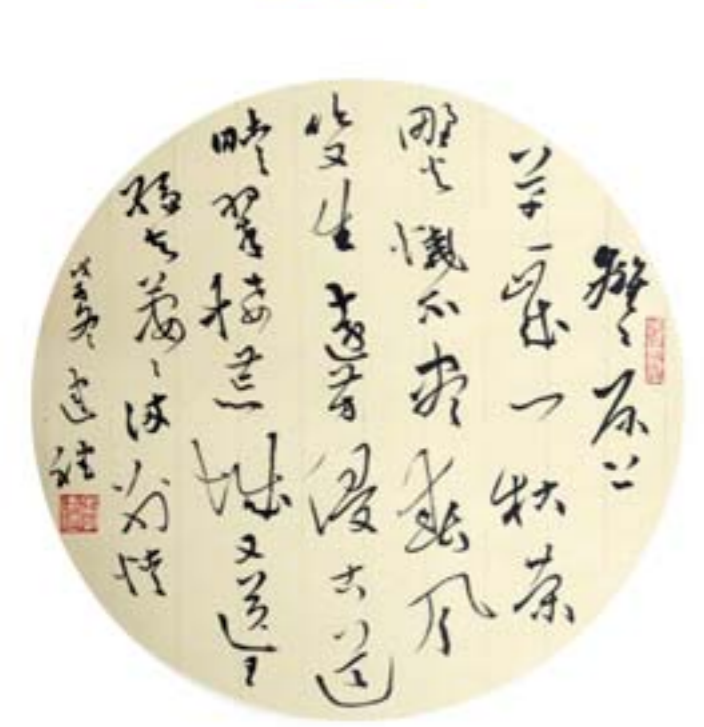 離〻原上
草一歲一枯榮
野火燒不盡春風
吹又生遠芳侵古道
晴翠接荒城又送王
孫去萋〻滿別情